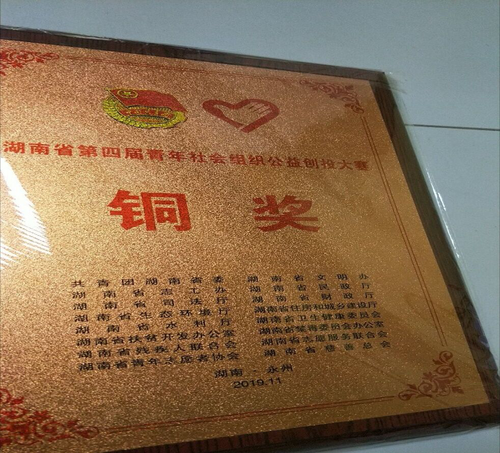 湖南省第四届青年社会组织公益创投大赛
铜奖
共青团湖南省委 湖南省文明办
湖南省志工办 湖南省民政厅
湖南省司法厅 湖南省财政厅
湖南省生态环境厅 湖南省住房和城乡建设厅
湖南省水利厅 湖南省卫生健康委员会
湖南省扶贫开发办公室 湖南省禁毒委员会办公室
湖南省残疾人联合会 湖南省志愿服务联合会
湖南省青年志愿者协会 湖南省慈善总会
湖南·永州
2019.11